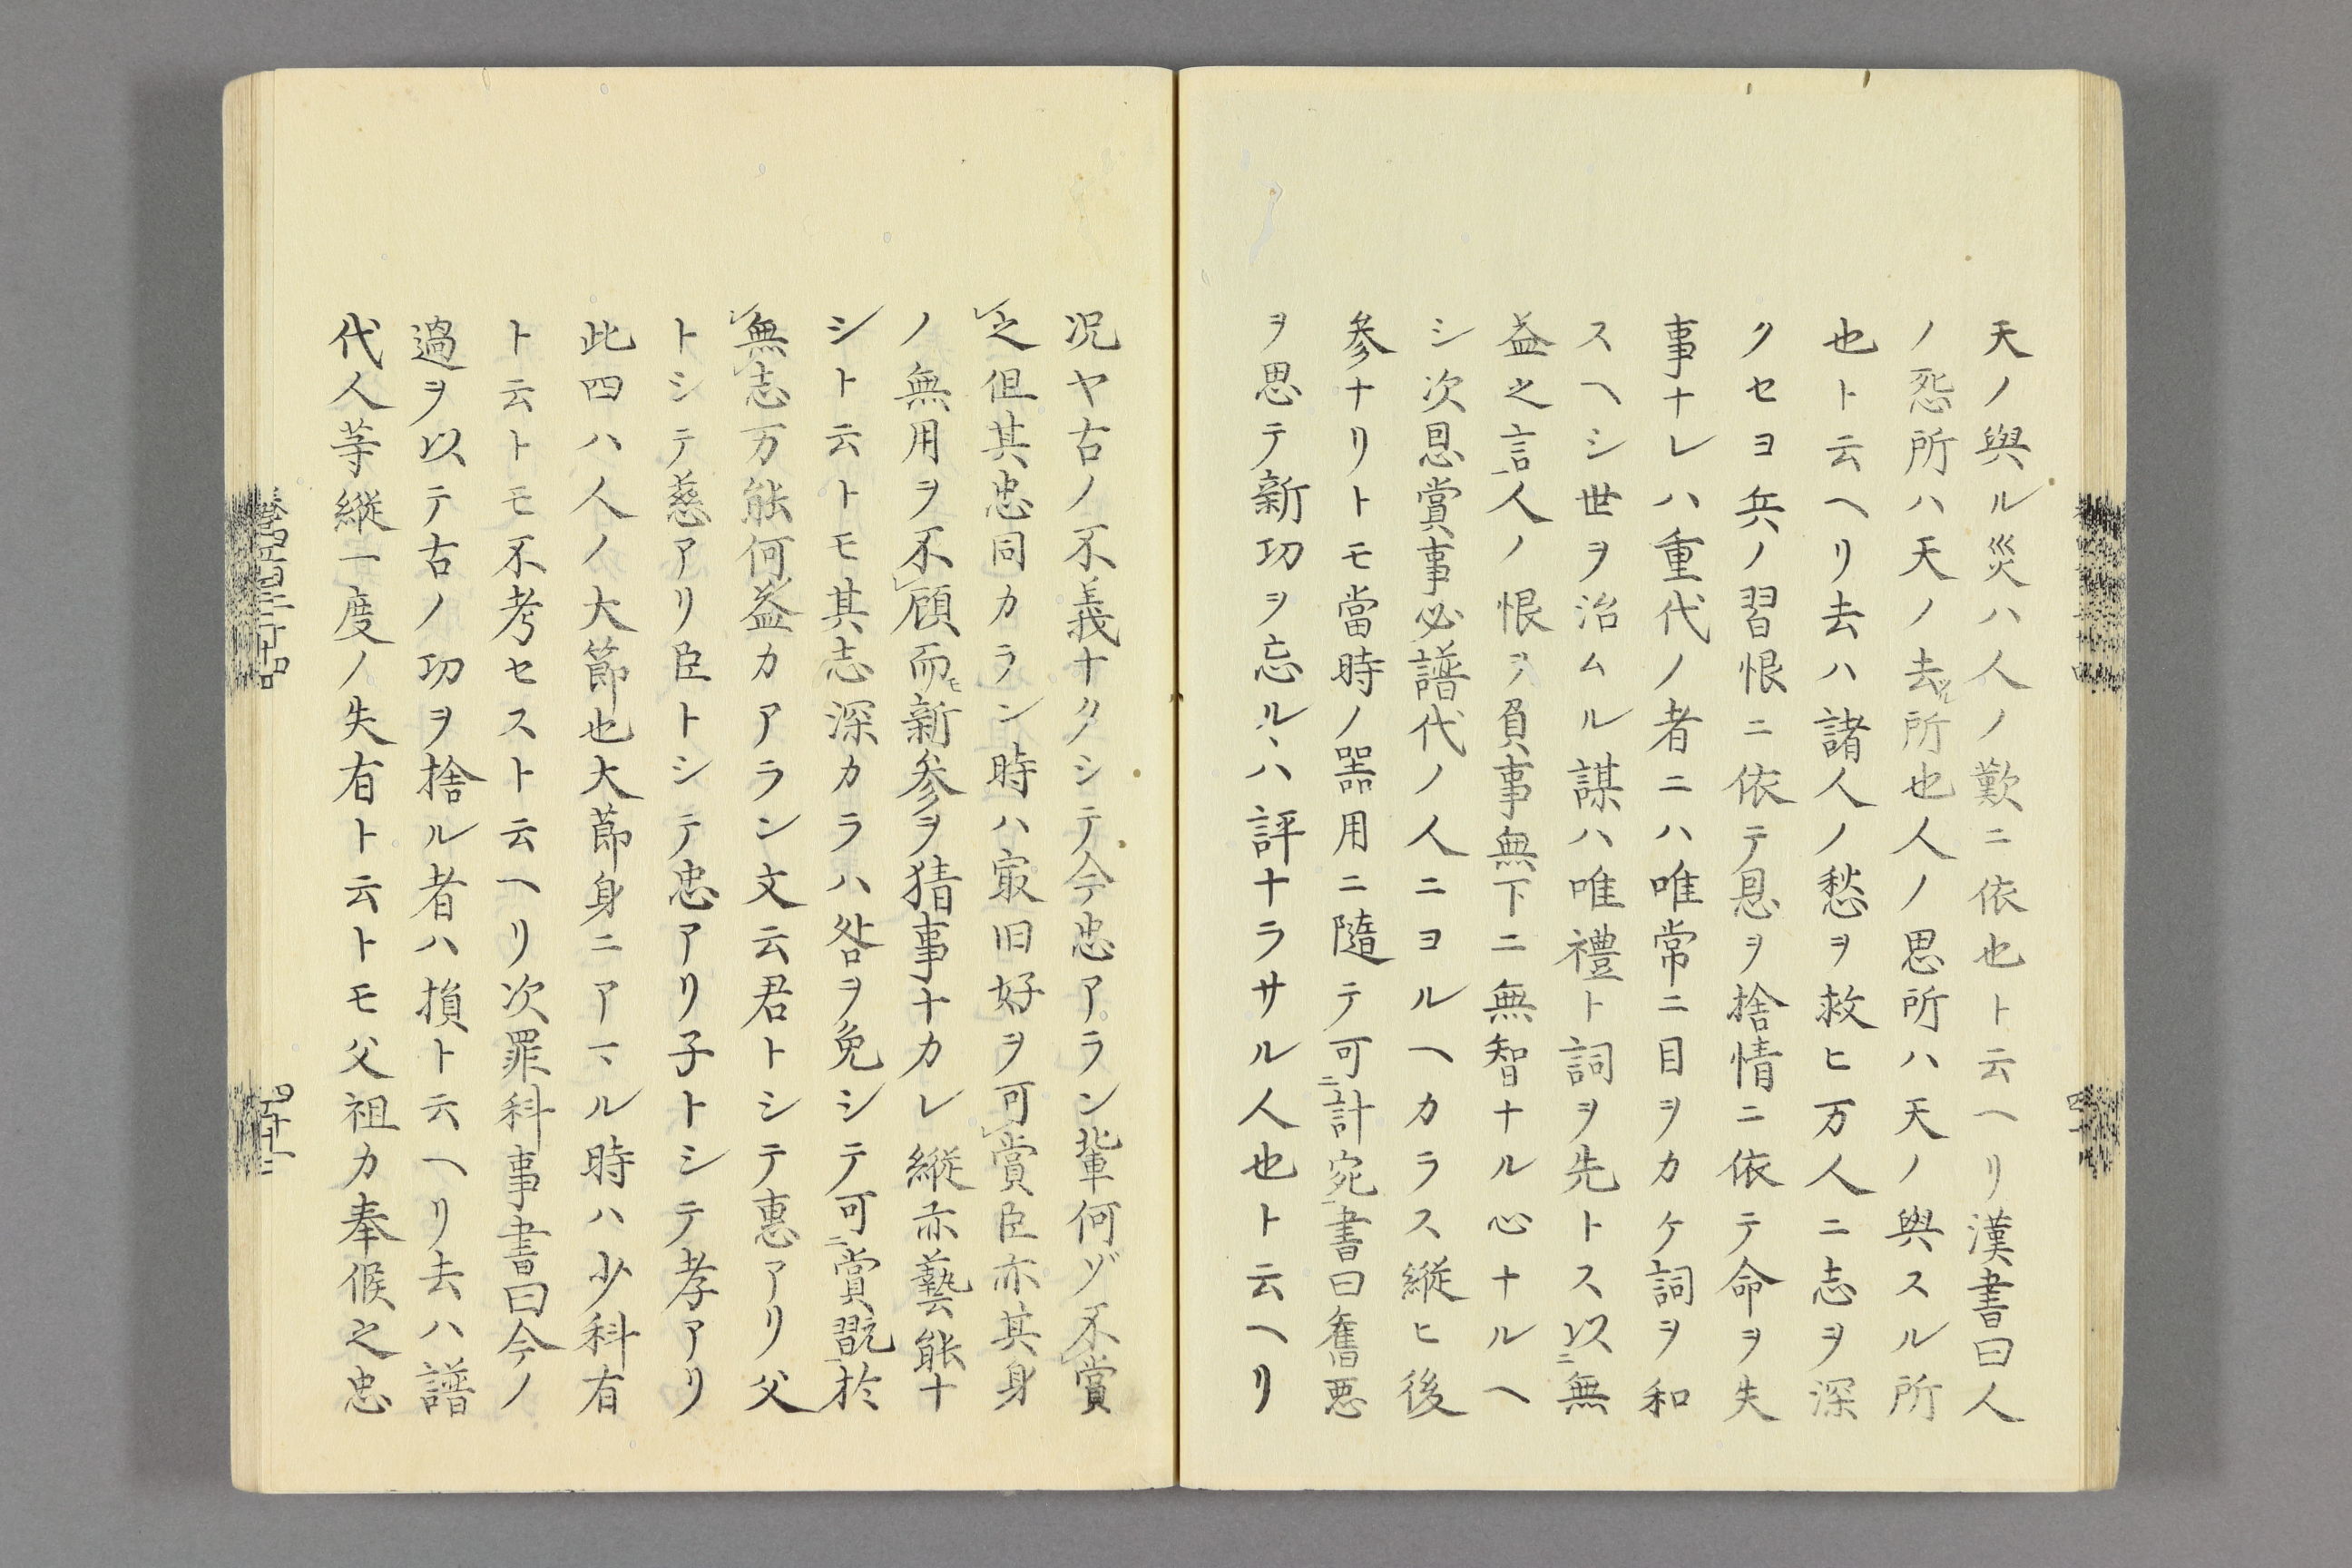 天ノ與ル災ハ人ノ歎ニ依也ト云ヘリ漢書曰人
ノ恐所ハ天ノ去ル所也人ノ思所ハ天ノ與スル所
也ト云ヘリ去ハ諸人ノ愁ヲ救ヒ万人ニ志ヲ深
クセヨ兵ノ習恨ニ依テ恩ヲ捨情ニ依テ命ヲ失
事ナレハ重代ノ者ニハ唯常ニ目ヲカケ詞ヲ和
スヘシ世ヲ治ムル謀ハ唯禮ト詞ヲ先トス以二無
益之言一人ノ恨ヲ負事無下ニ無智ナル心ナルヘ
シ次恩賞事必譜代ノ人ニヨルヘカラス縦ヒ後
参ナリトモ當時ノ噐用ニ隨テ可二計宛一書曰舊悪
ヲ思テ新功ヲ忘ルヽハ評ナラサル人也ト云ヘリ
况ヤ古ノ不義ナクシテ今忠アラン輩何ゾ不レ賞
レ之但其忠同カラン時ハ㝡旧好ヲ可レ賞臣亦其身
ノ無用ヲ不レ顧而モ新参ヲ猜事ナカレ縦亦藝能ナ
シト云トモ其志深カラハ咎ヲ免シテ可二賞翫一於
レ無レ志万能何益カアラン文云君トシテ惠アリ父
トシテ慈アリ臣トシテ忠アリ子トシテ孝アリ
此四ハ人ノ大節也大莭身ニアマル時ハ少科有
ト云トモ不考セスト云ヘリ次罪科事書曰今ノ
過ヲ以テ古ノ功ヲ捨ル者ハ損ト云ヘリ去ハ譜
代人等縦一度ノ失有ト云トモ父祖カ奉候之忠